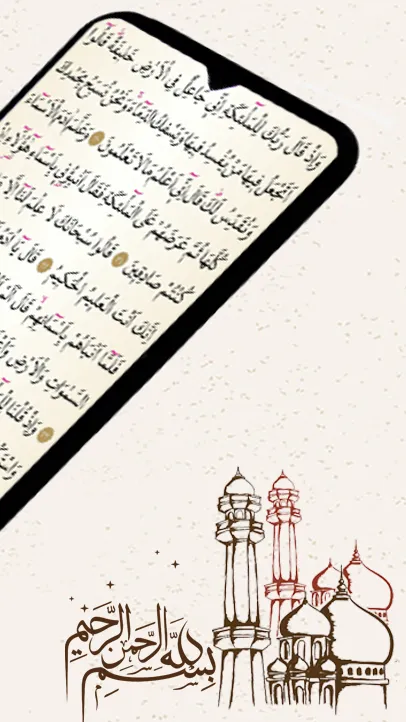 وَإِذْ قَالَ رَبُّكَ لِلْمَلٰٓئِكَةِ إِنِّي جَاعِلٌ فِي الْأَرْضِ خَلِيفَةً قَالُوا
أَتَجْعَلُ فِيهَا مَنْ يُفْسِدُ فِيهَا وَيَسْفِكُ الدِّمَاءَ وَنَحْنُ نُسَبِّحُ بِحَمْدِكَ
وَنُقَدِّسُ لَكَ قَالَ إِنِّي أَعْلَمُ مَا لَا تَعْلَمُونَ وَعَلَّمَ اٰدَمَ الْأَسْمَاءَ
كُلَّهَا ثُمَّ عَرَضَهُمْ عَلَى الْمَلٰٓئِكَةِ فَقَالَ أَنْبِئُونِي بِأَسْمَاءِ هٰٓؤُلَاءِ
كُنْتُمْ صَادِقِينَ قَالُوا سُبْحَانَكَ لَا عِلْمَ لَنَا إِلَّا
إِنَّكَ أَنْتَ الْعَلِيمُ الْحَكِيمُ قَالَ يَا اٰدَمُ
فَلَمَّا أَنْبَأَهُمْ بِأَسْمَائِهِمْ قَالَ أَلَمْ
السَّمٰوَاتِ وَالْأَرْضِ
وَإِذْ قُلْنَا
بِسْمِ اللّٰهِ الرَّحْمٰنِ الرَّحِيمِ